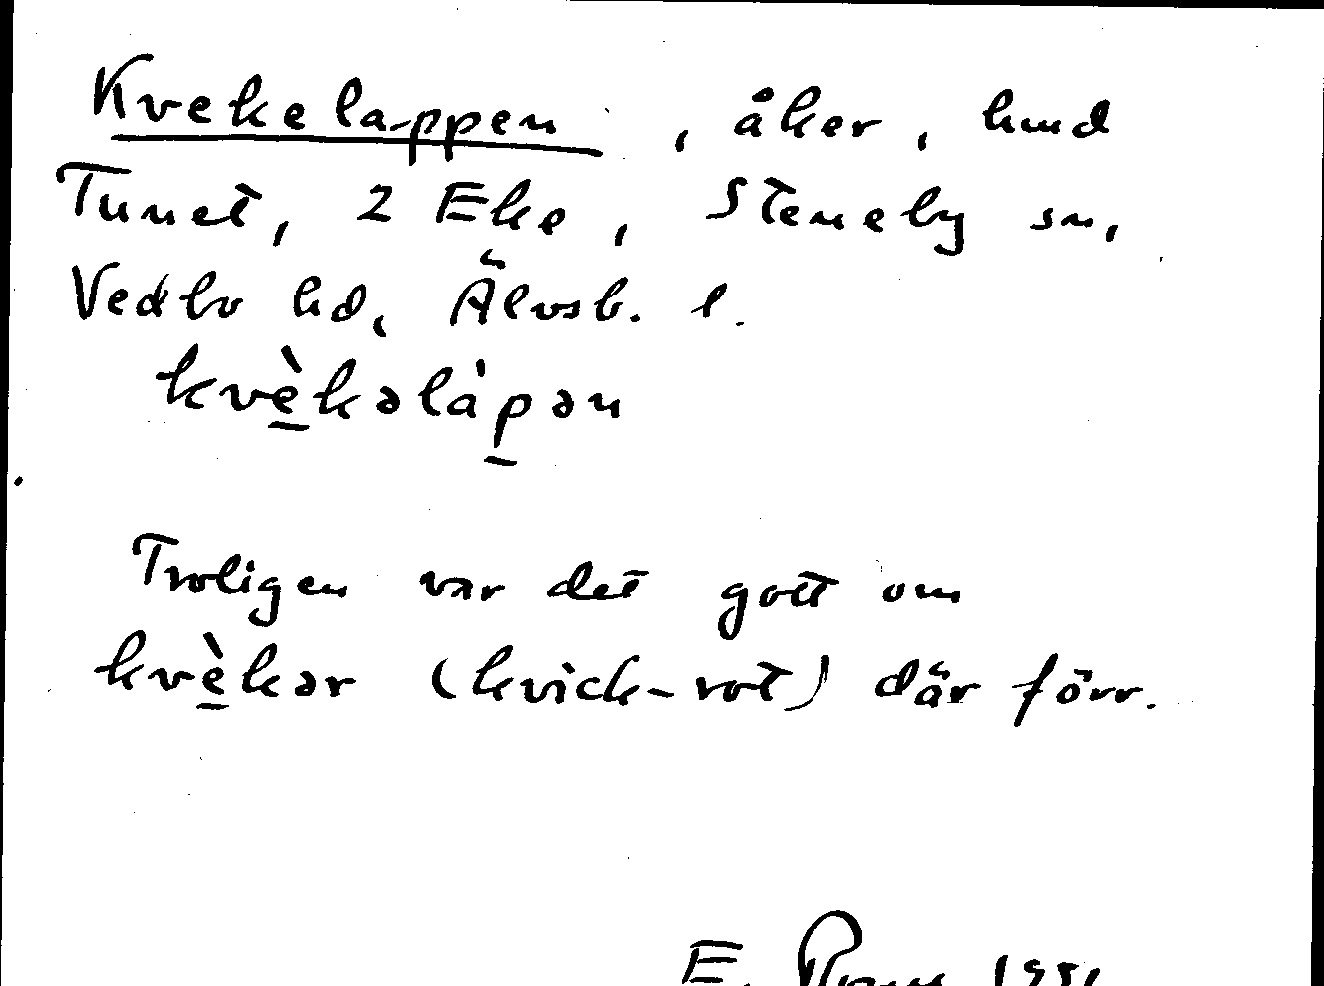 Kvekelappen, åker, hmd
Tunet, 2 Eke, Steneby sn,
Vedbo hd, Älvsb. l.
kvè̱kəlàp̱ən
Troligen var det gott om
kvè̱kər (kvick-rot) där förr.
E.